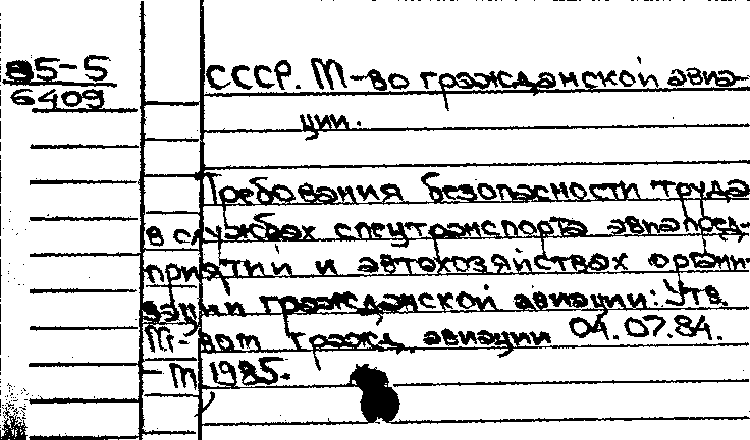 85-5
6409
СССР. М-во гражданской авиа-
ции.
Требования безопасности труда
в службах спецтранспорта авиапред-
приятий и автохозяйствах органи-
зации гражданской авиации: Утв.
М-вом гражд. авиации 04.07.84.
– М, 1985.